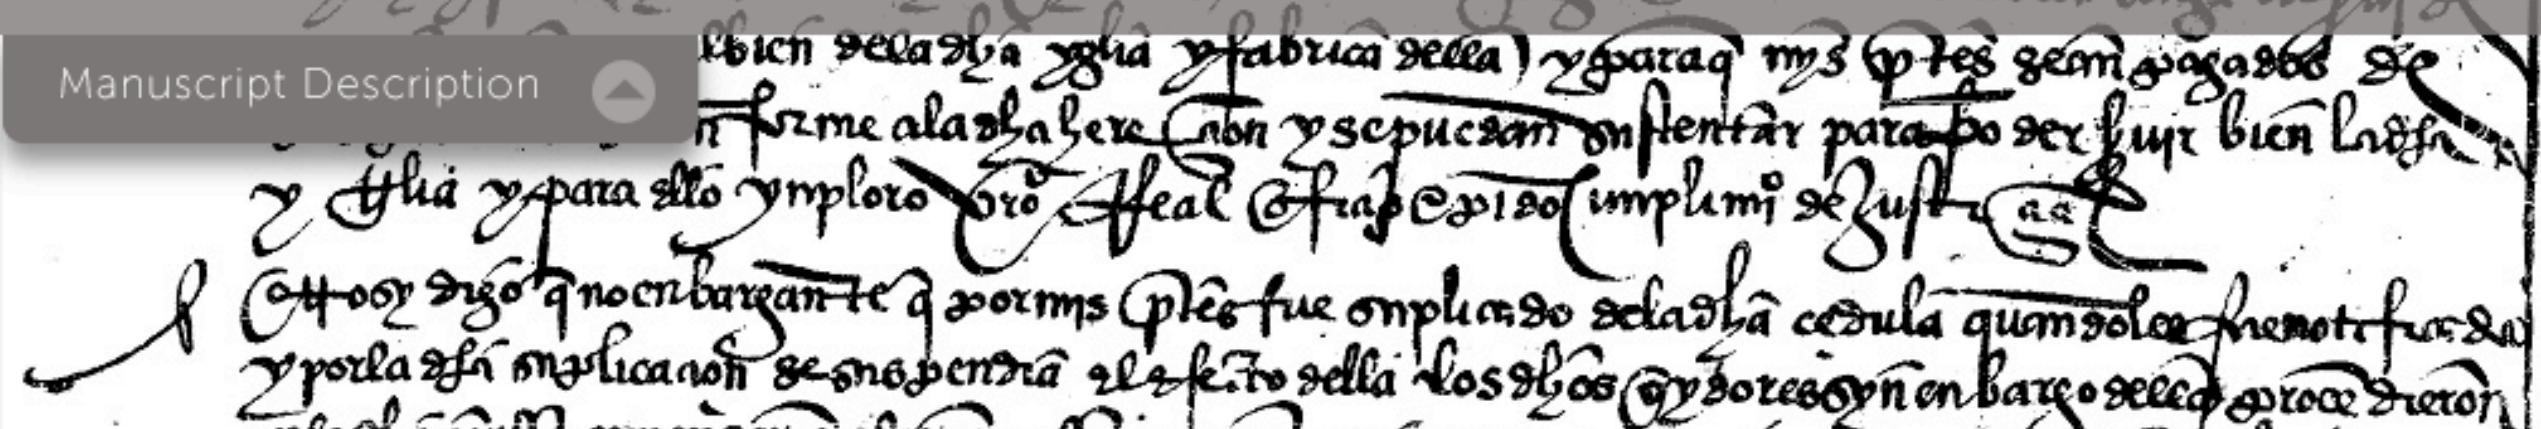 el bien de la dha yglia y fabrica della y para q mys ptes sean pagados de
Manuscript Description
forme a la dha herecabon y se puedan sustentar para poder seruir bien la dha
yglia y para ello ynploro vro Real offiº e pido cumplimiº de Justª
Otrosy digo q no enbargante q por mis ptes fue suplicado de la dha cedula quando les fue notificada
y por la dha suplicacion se suspendia el efecto della los dhos oydores syn enbargo dello procedieron